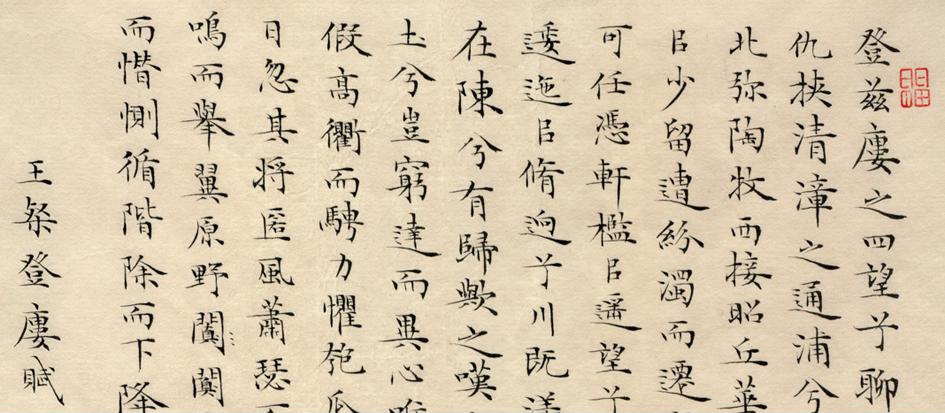 登兹廔之四望兮聊
仇挟清漳之通浦兮
北弥陶牧西接昭丘華
㠯少留遭紛濁而遷
可任憑軒檻㠯遥望兮
逶迤㠯脩迥兮川既漾
在陳兮有歸歟之嘆
土兮豈窮達而異心唯
假高衢而騁力懼匏瓜
日忽其将匿風蕭瑟而
鳴而舉翼原野闃
而憯惻循階除而下降
王粲登廔賦